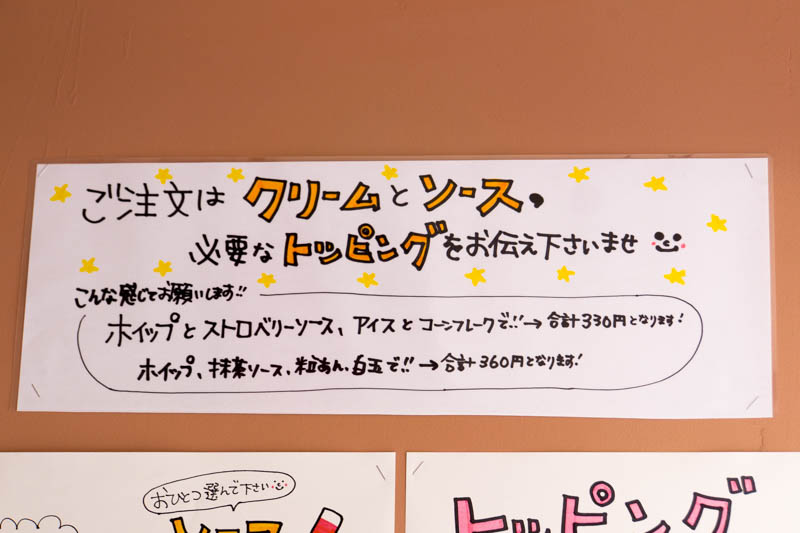 ご注文は クリームと ソース,
必要な トッピングをお伝え下さいませ
こんな感じでお願いします!!
ホイップとストロベリーソース、アイスとコーンフレークで!!→合計330円となります!
ホイップ、抹茶ソース、粒あん、白玉で!!→合計360円となります!
おひとつ選んで下さい
ソース
トッピング